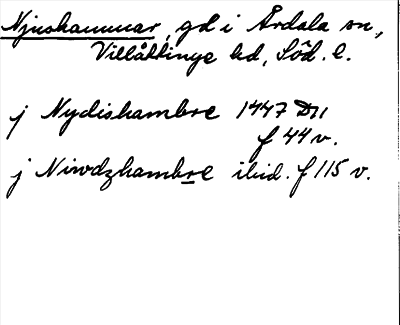 Njushammar, gd i Årdala sn,
Villåttinge hd, Söd. l.
j Nydishambre 1447 D11
f 44 v.
j Niwdzhambre ibid. f 115 v.